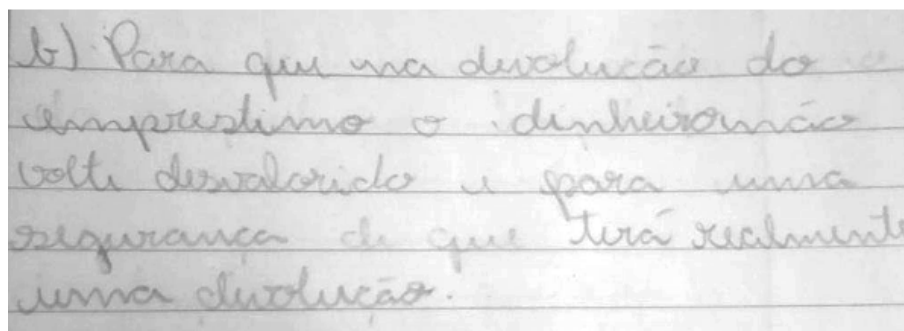 b) Para que na devolução do
emprestimo o dinheiro não
volte desvalorido e para uma
segurança de que terá realmente
uma devolução.